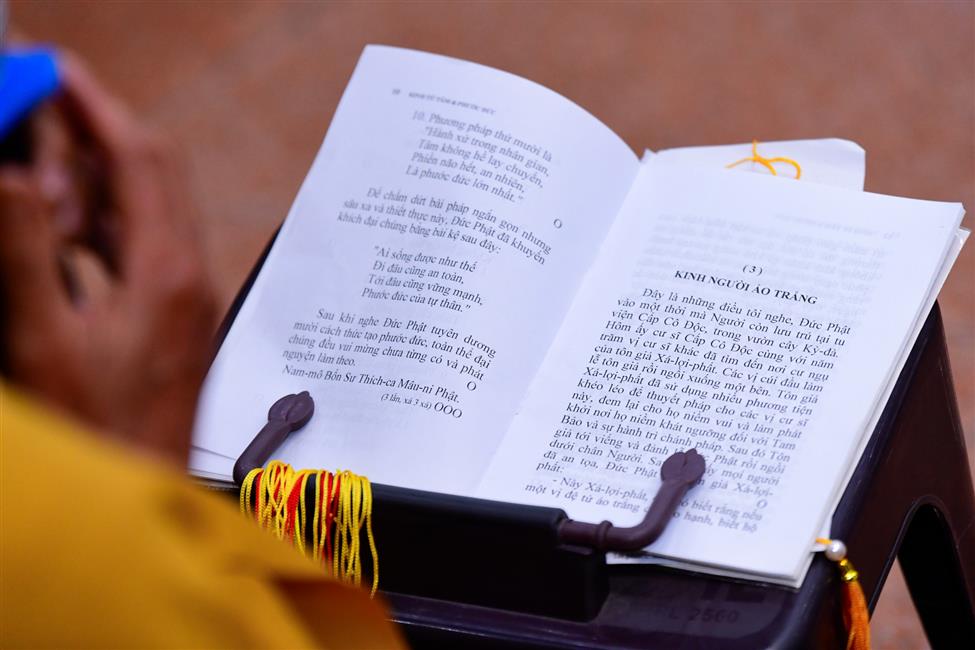 10 KINH TỪ TÂM & PHƯỚC ĐỨC
10. Phương pháp thứ mười là
"Hành xử trong nhân gian,
Tâm không hề lay chuyển,
Phiền não hết, an nhiên,
Là phước đức lớn nhất."
O
Để chấm dứt bài pháp ngắn gọn nhưng
sâu xa và thiết thực này, Đức Phật đã khuyến
khích đại chúng bằng bài kệ sau đây:
"Ai sống được như thế
Đi đâu cũng an toàn,
Tới đâu cũng vững mạnh,
Phước đức của tự thân."
Sau khi nghe Đức Phật tuyên dương
mười cách thức tạo phước đức, toàn thể đại
chúng đều vui mừng chưa từng có và phát
nguyện làm theo. O
Nam-mô Bổn Sư Thích-ca Mâu-ni Phật.
(3 lần, xá 3 xá) OOO
(3)
KINH NGƯỜI ÁO TRẮNG
Đây là những điều tôi nghe, Đức Phật
vào một thời mà Người còn lưu trú tại tu
viện Cấp Cô Độc, trong vườn cây Kỳ-đà.
Hôm ấy cư sĩ Cấp Cô Độc cùng với năm
trăm vị cư sĩ khác đã tìm đến nơi cư ngụ
của tôn giả Xá-lợi-phất. Các vị cúi đầu làm
lễ tôn giả rồi ngồi xuống một bên. Tôn giả
Xá-lợi-phất đã sử dụng nhiều phương tiện
khéo léo để thuyết pháp cho các vị cư sĩ
này, đem lại cho họ niềm vui và làm phát
khởi nơi họ niềm khát ngưỡng đối với Tam
Bảo và sự hành trì chánh pháp. Sau đó Tôn
giả tới viếng và đảnh Phật rồi ngồi
dưới chân Người. mọi người
đã an tọa, Đức Phật giả Xá-lợi-
phất: O
- Này Xá-lợi-phất, biết rằng nếu
một vị đệ tử áo trắng hạnh, biết hộ
2560